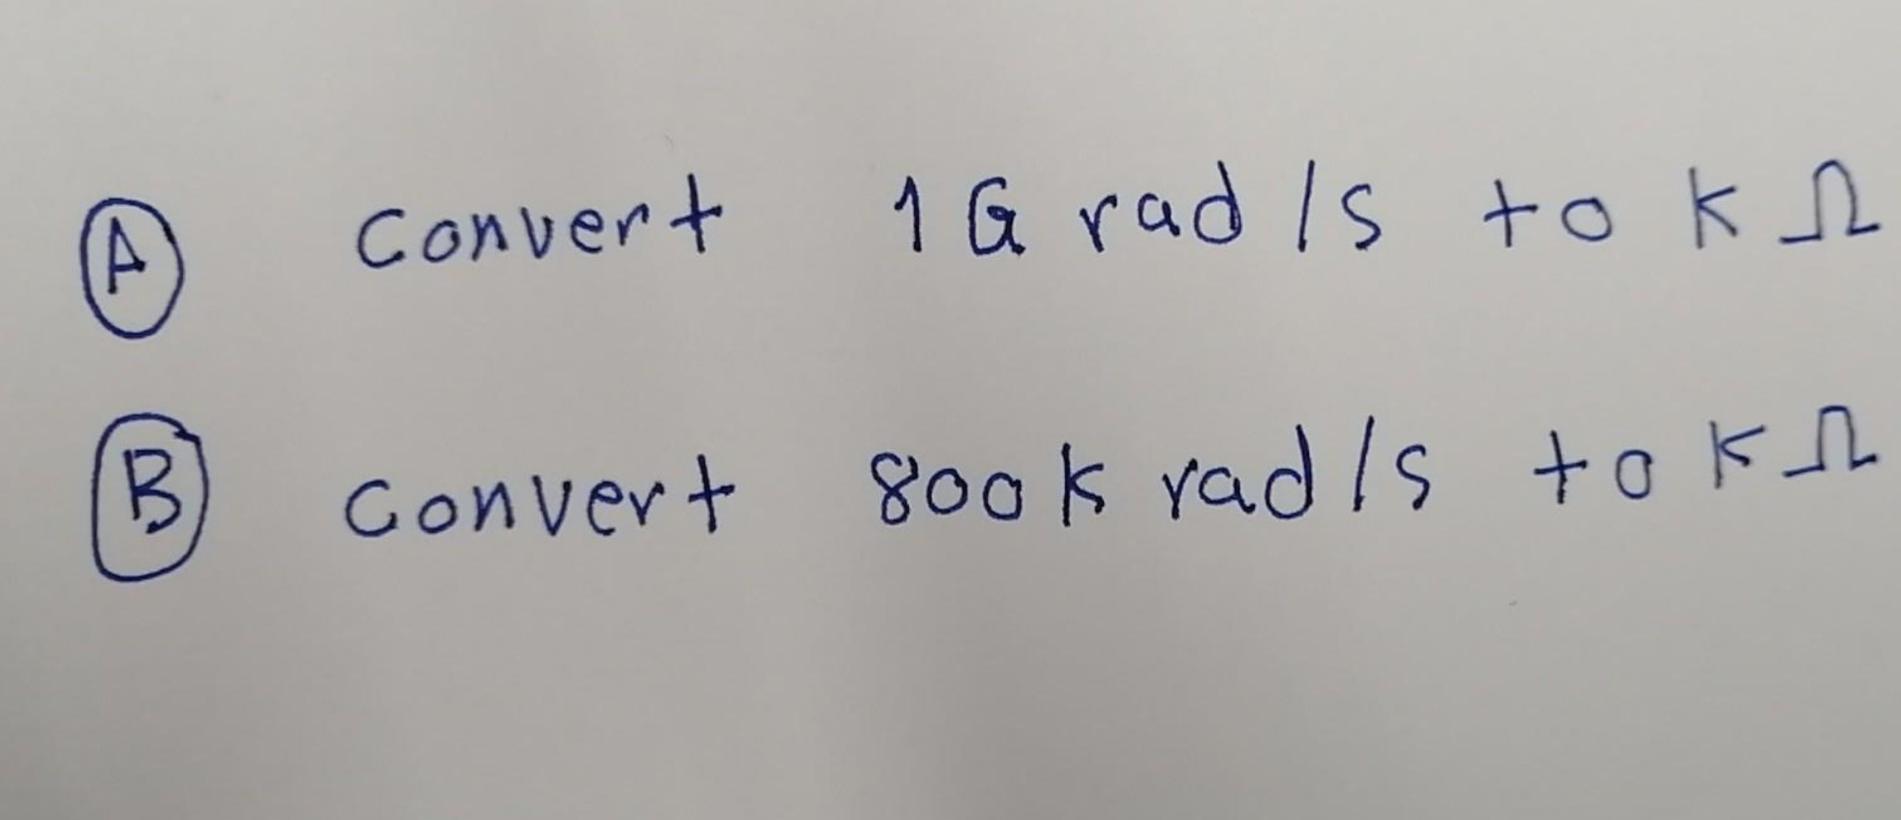 A convert 1G rad/s to KΩ
B convert 800K rad/s to KΩ